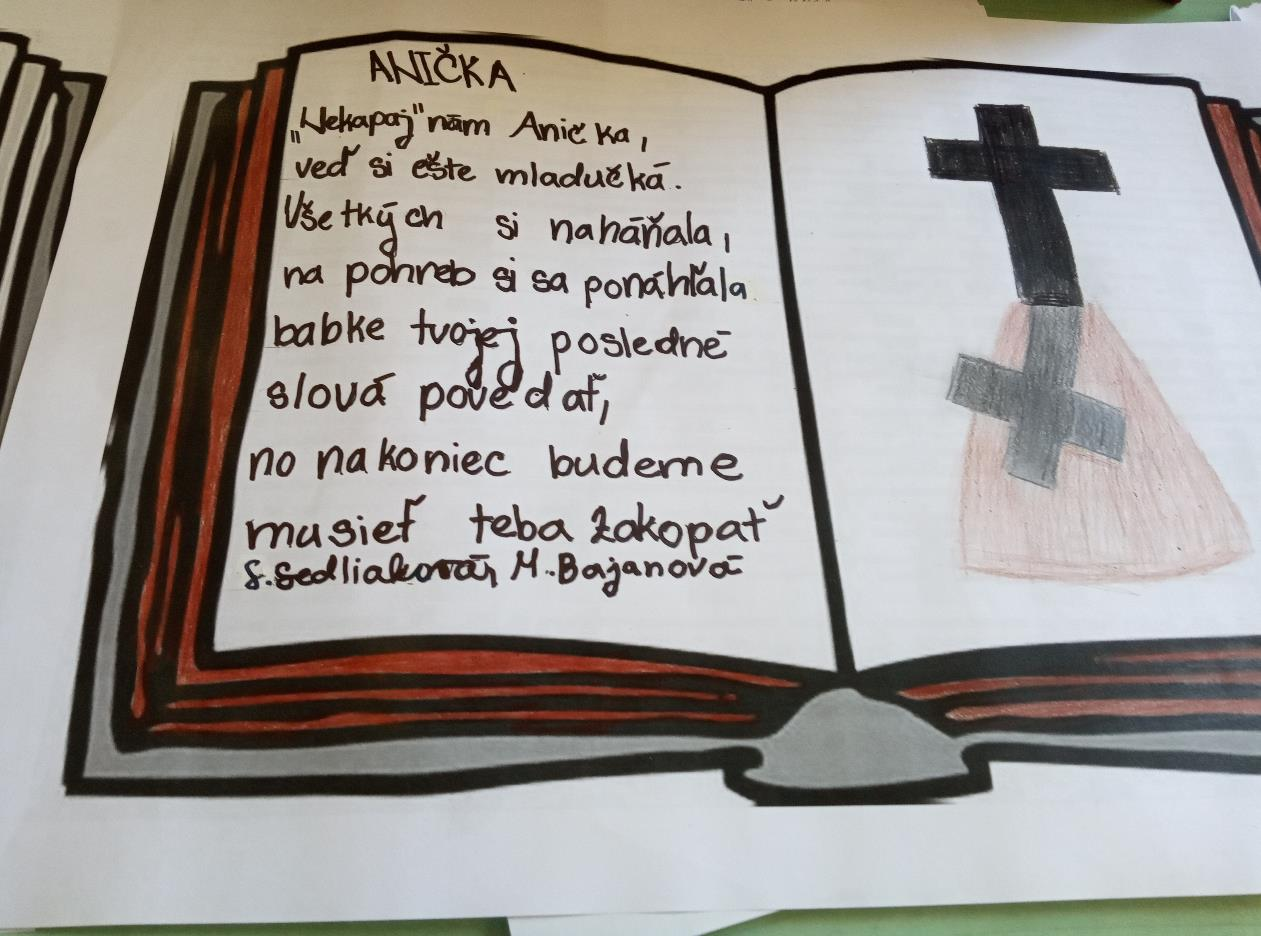 ANIČKA
„Nekapaj" nám Anička,
veď si ešte mladučká.
Všetkých si naháňala,
na pohreb si sa ponáhľala
babke tvojej posledné
slová povedať,
no nakoniec budeme
musieť teba zakopať
S. Sedliaková, M. Bajanová